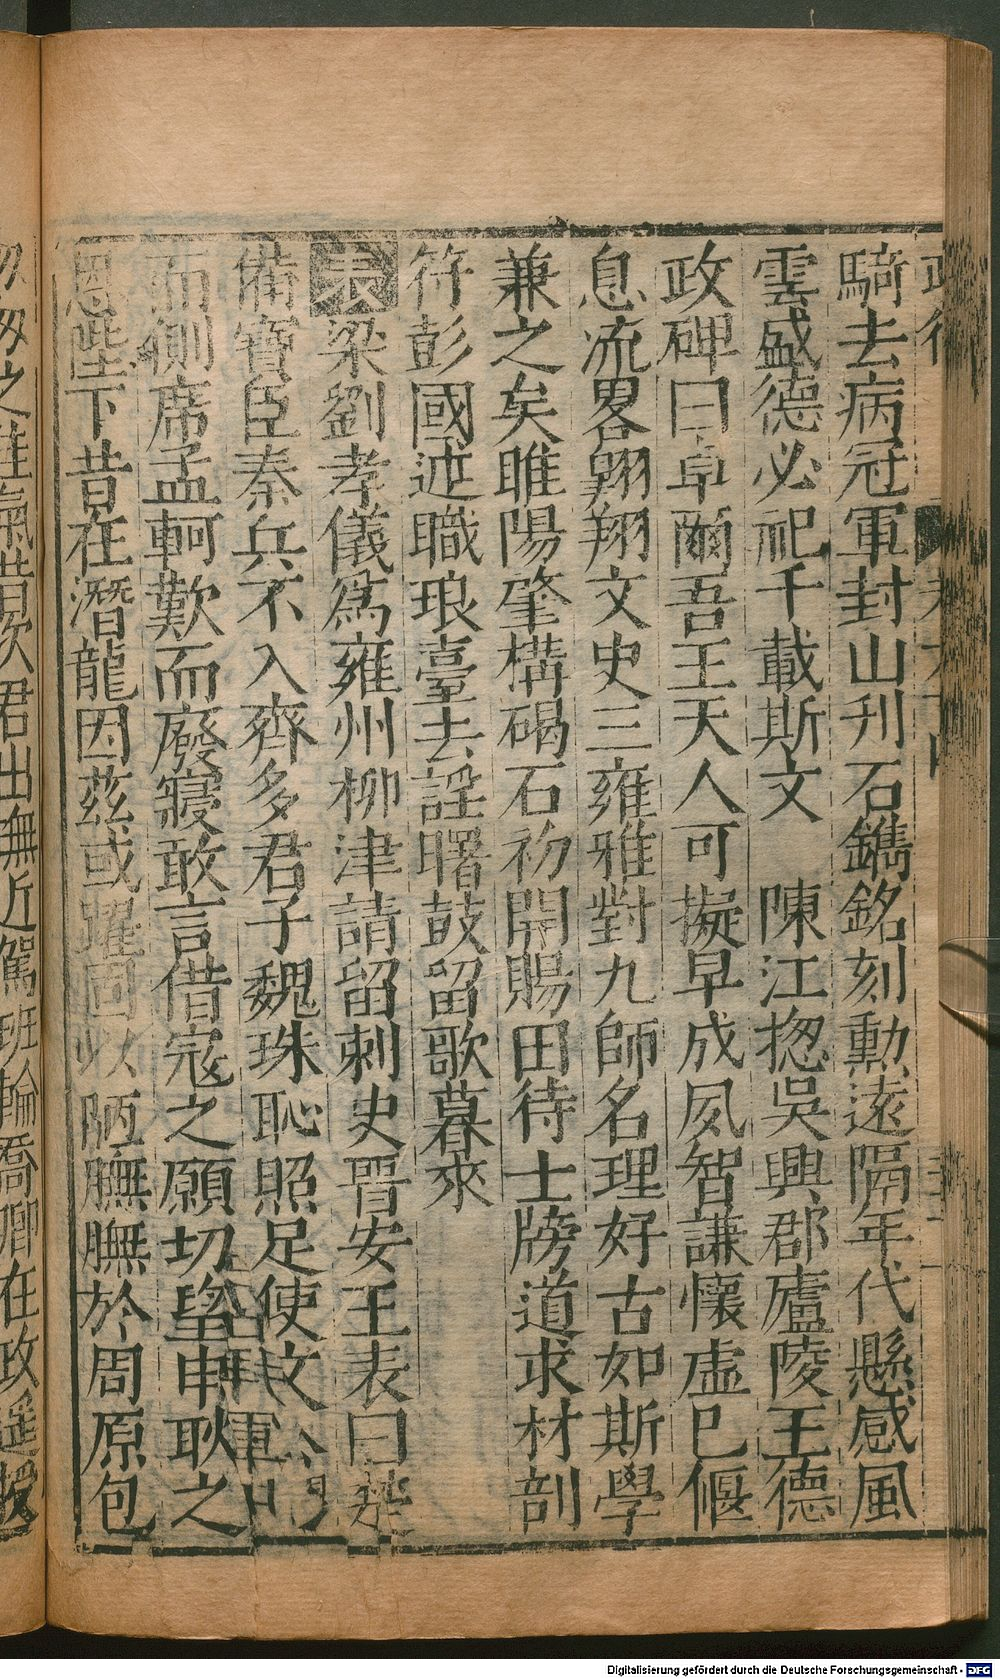 騎去病冠軍封山刋石鐫銘刻勳遠隔年代懸感風
雲盛德必祀千載斯文 陳江揔吳興郡廬陵王德
政碑曰卓爾吾王天人可擬早成夙智謙懷虛已偃
息流畧翱翔文史三雍雅對九師名理好古如斯學
兼之矣睢陽肇構碣石初開賜田待士牓道求材剖
符彭國述職琅臺去謡曙鼓留歌暮來
表梁劉孝儀爲雍州柳津請留刺史晋安王表曰楚
備寶臣秦兵不入齊多君子魏珠恥照足使文
而側席孟軻歎而廢寢敢言借寇之願切望申耿之
恩陛下昔在潛龍因兹或躍固以陋膴膴於周原包
之進氣世昜次君出無近駕班輪喬卿在政遥授
Digitalisierung gefördert durch die Deutsche Forschungsgemeinschaft - DFG